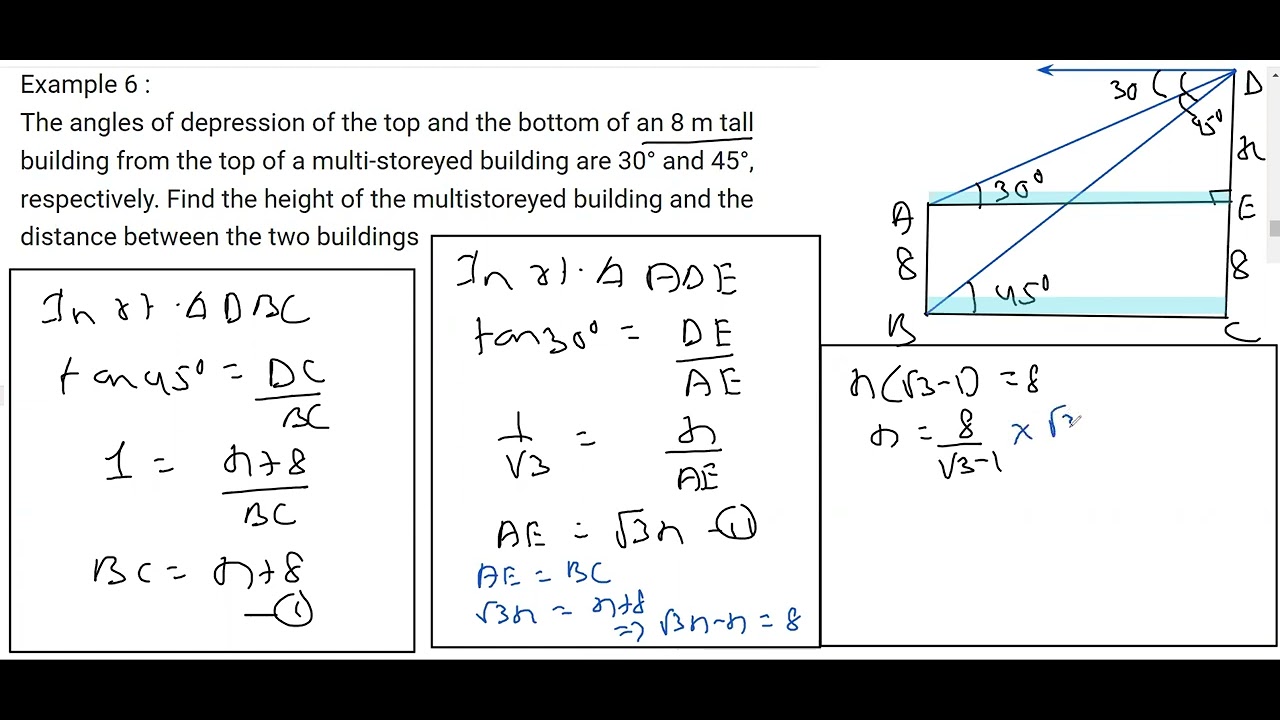 Example 6 :
The angles of depression of the top and the bottom of an 8 m tall
building from the top of a multi-storeyed building are 30° and 45°,
respectively. Find the height of the multistoreyed building and the
distance between the two buildings
In rt. Δ DBC
tan45° = DC/BC
1 = x+8/BC
BC = x+8
—①
In rt. Δ ADE
tan30° = DE/AE
1/√3 = x/AE
AE = √3x —⑪
AE = BC
√3x = x+8
=> √3x-x = 8
30
D
45°
x
30°
A
E
8
8
45°
B
C
x(√3-1) = 8
x = 8/√3-1 × √3